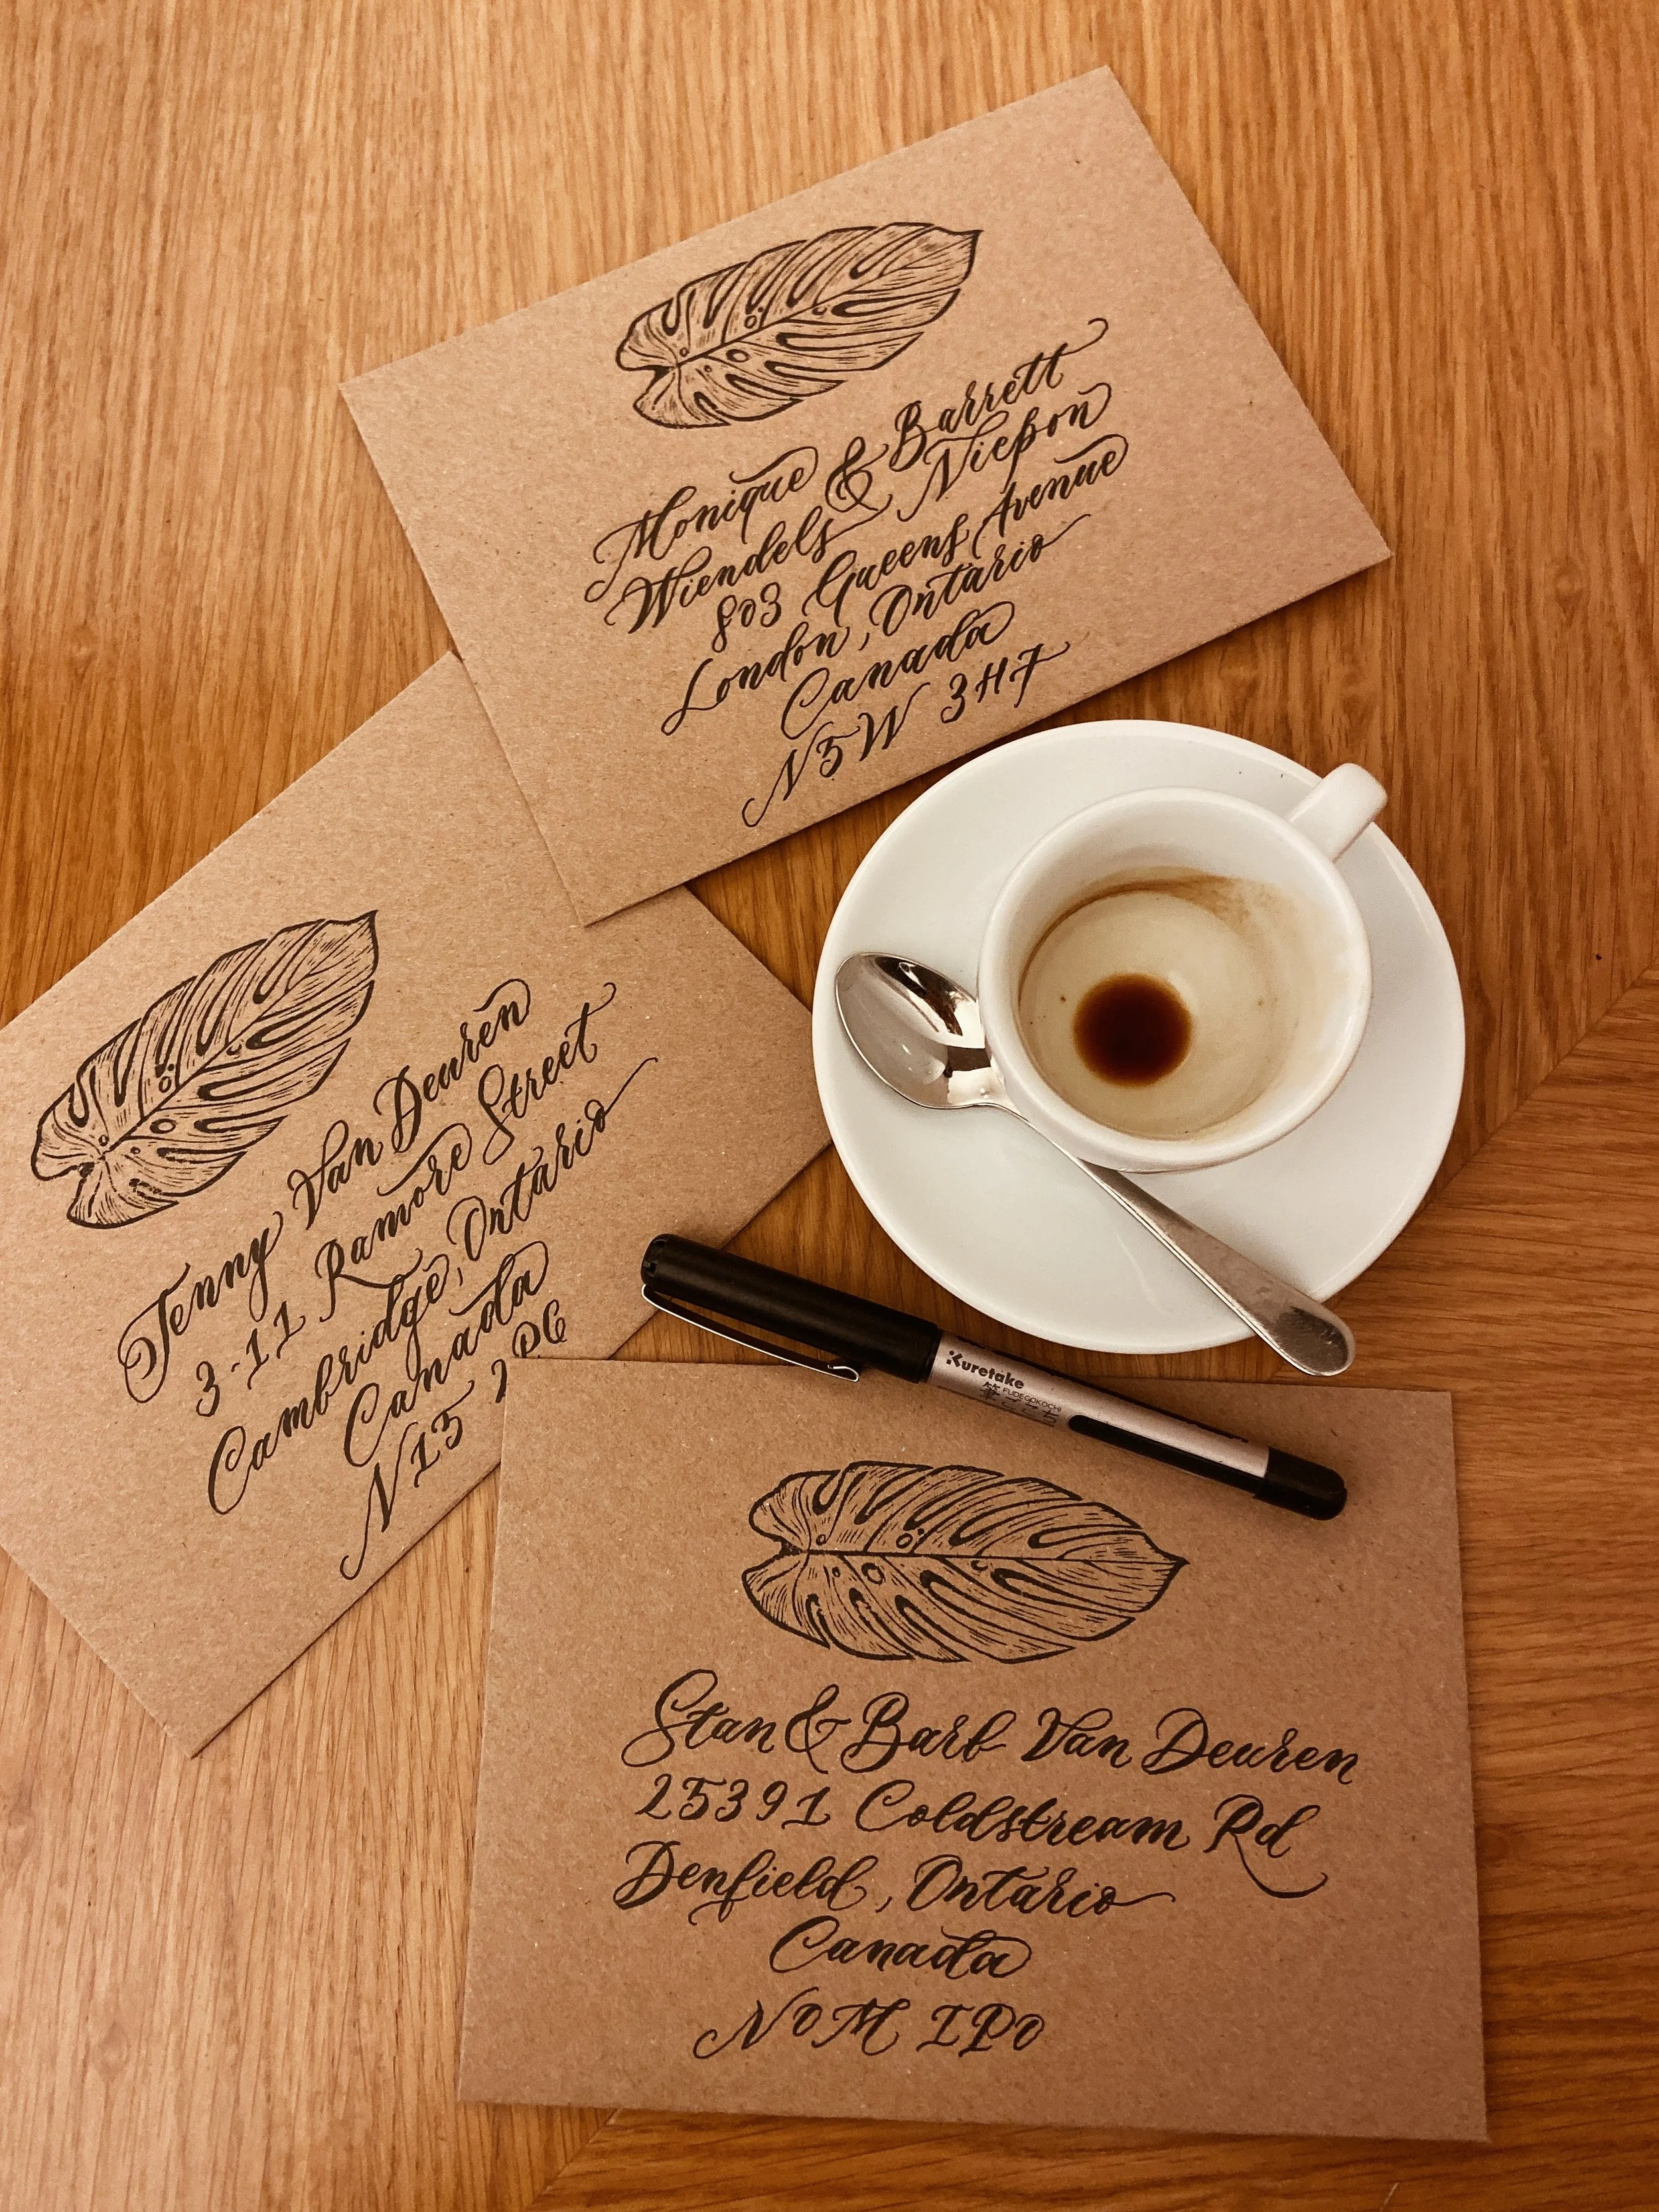 Monique & Barrett
Wiendels Niepon
803 Queens Avenue
London, Ontario
Canada
N5W 3H7
Jenny Van Deuren
3-11 Ramore Street
Cambridge, Ontario
Canada
N15 2P6
Kuretake
筆ごこち FUDEGOKOCHI
Stan & Barb Van Deuren
25391 Coldstream Rd
Denfield, Ontario
Canada
N0M IP0